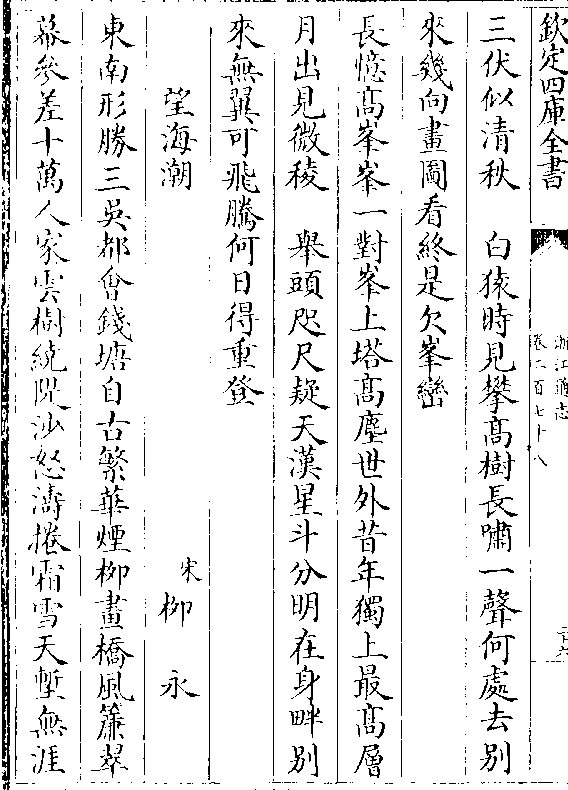 欽定四庫全書
浙江通志
卷二百七十八
三伏似清秋　白猿時見攀高樹長嘯一聲何處去别
來幾向畫圖看終是欠峯巒
長憶髙峯峯一對峯上塔髙塵世外昔年獨上最髙層
月出見微稜　舉頭咫尺疑天漢星斗分明在身畔别
來無翼可飛騰何日得重登
望海潮
宋　柳　永
東南形勝三吳都會錢塘自古繁華煙栁畫橋風簾翠
幕參差十萬人家雲樹繞隄沙怒濤捲霜雪天塹無涯